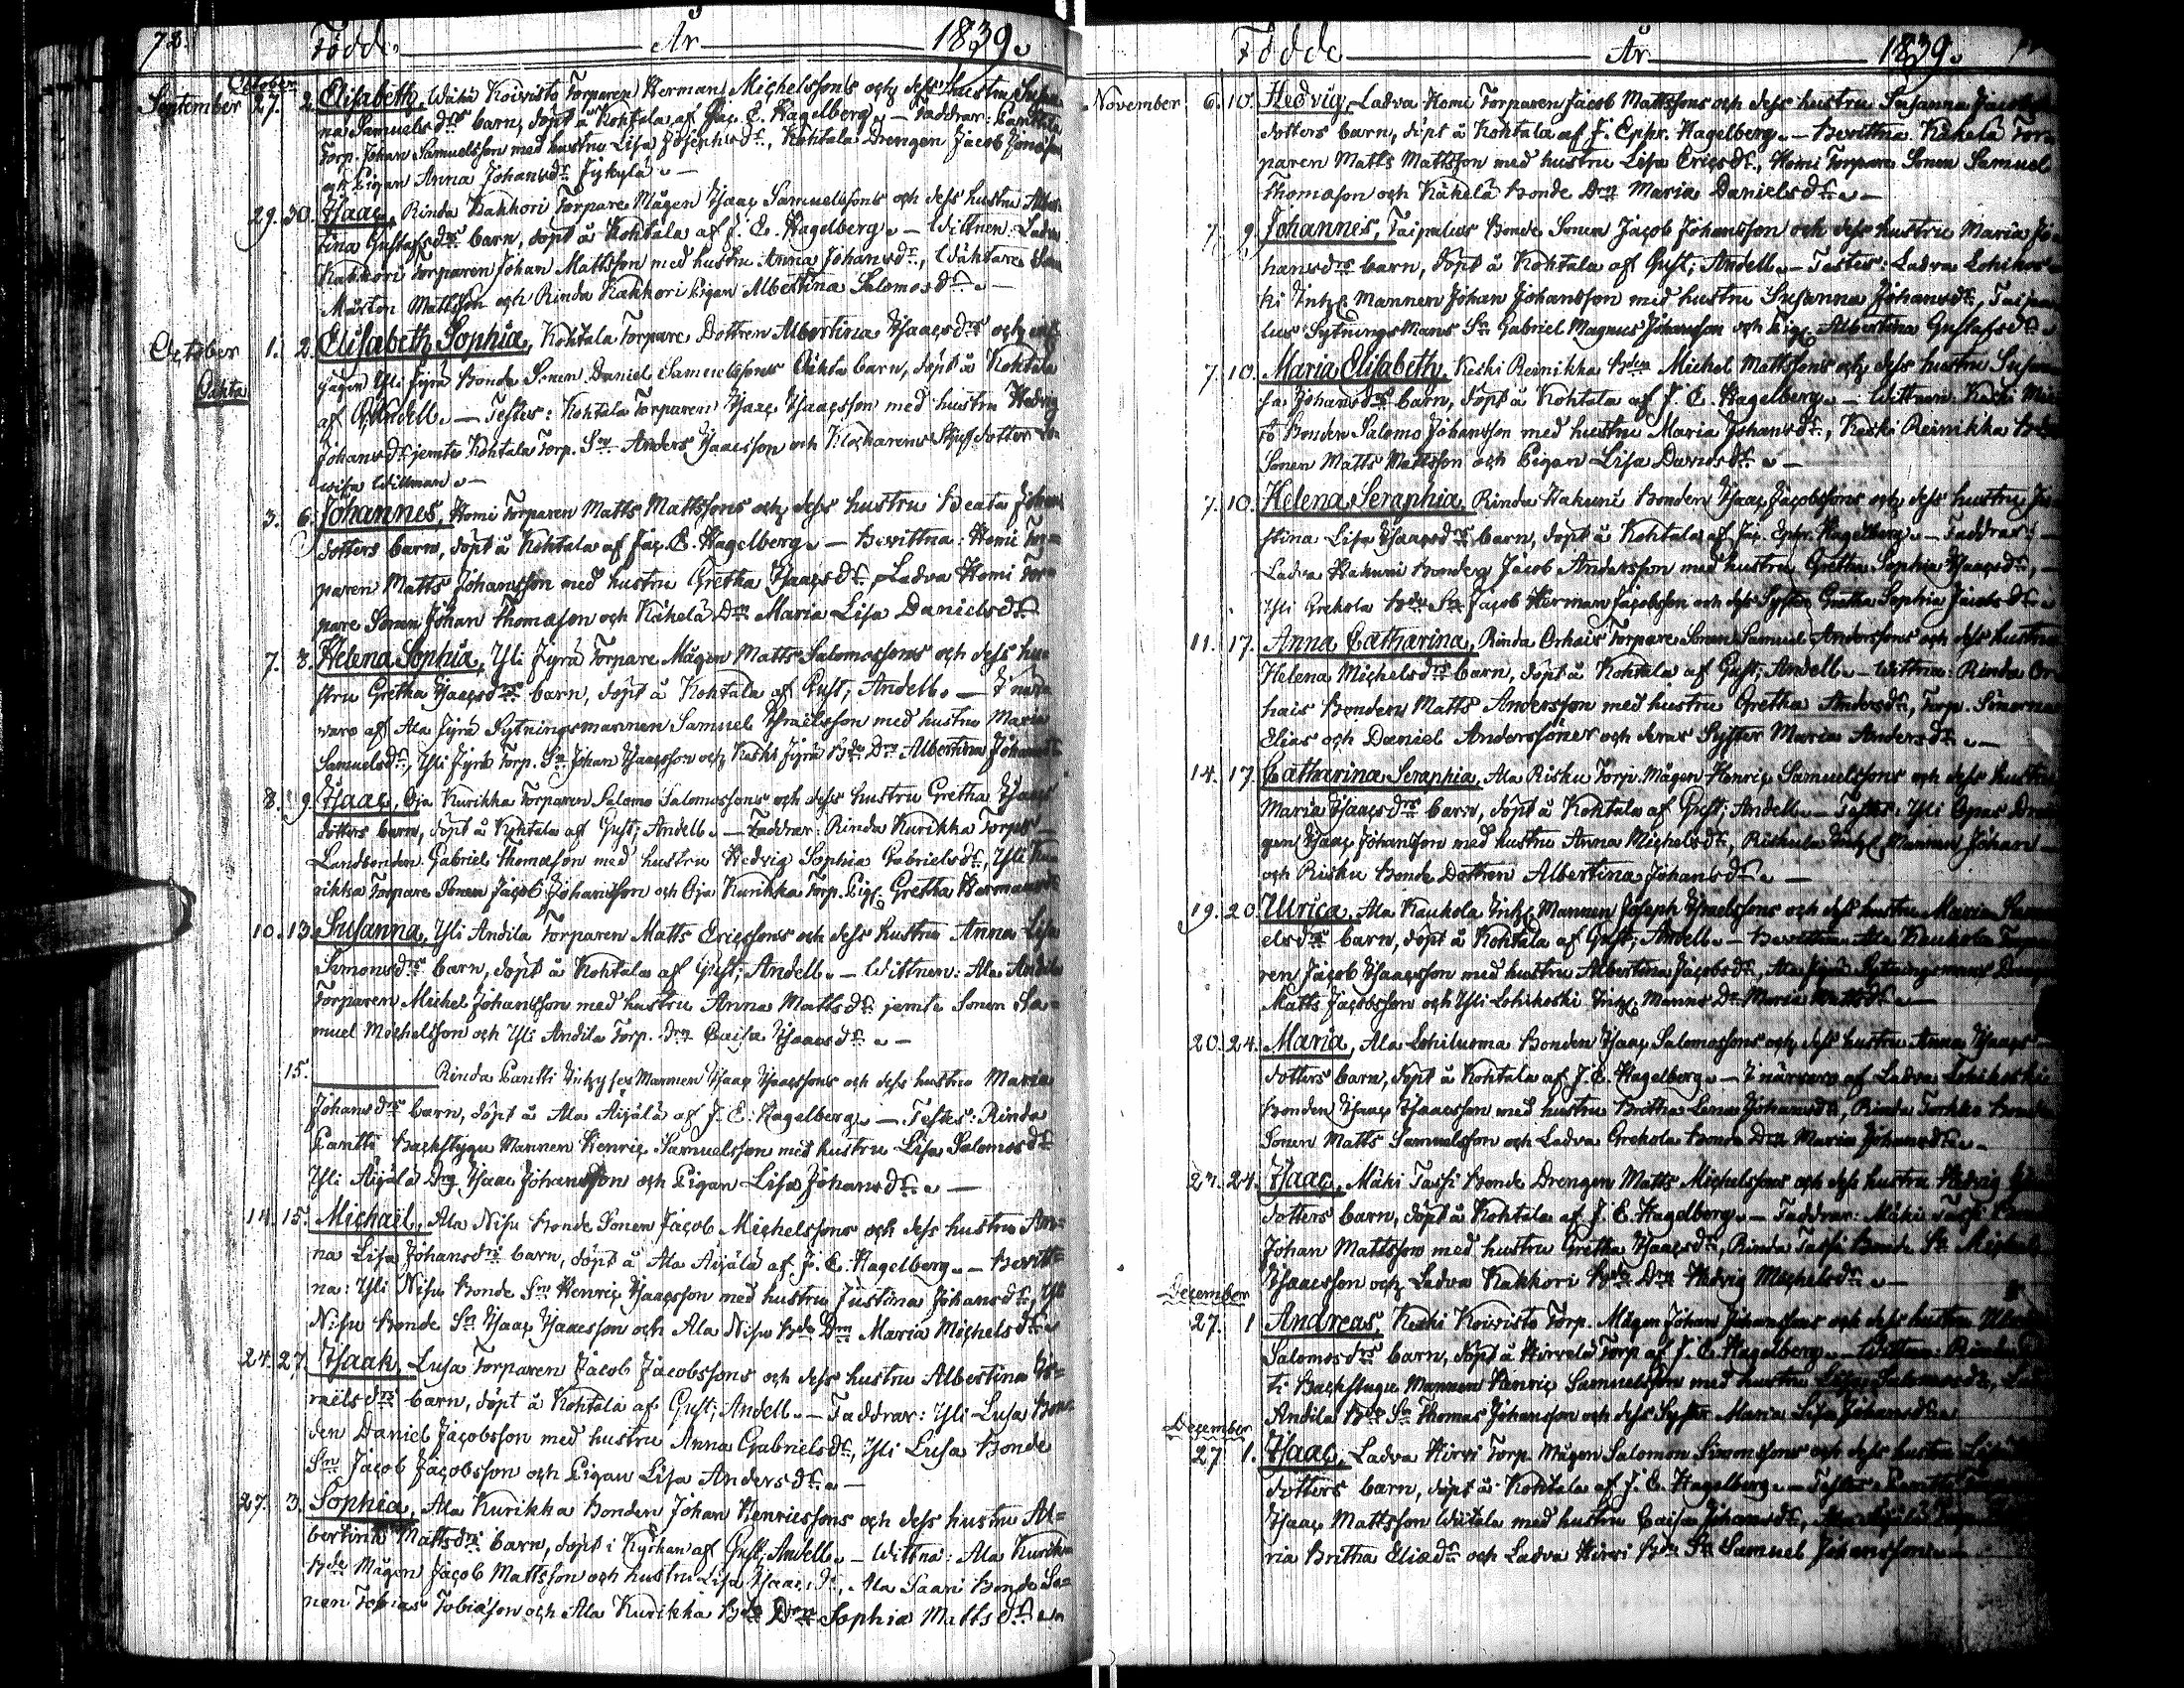 78. Födde År 1839.
October
September 27. 2. Elisabeth, Koivisto Torparen Herman Michelssons och dess hustru Susan-
na Samuelsdrs barn, döpt å Kohtala af Jac. E. Hagelberg. — Faddrar:
Torp. Johan Samuelsson med hustru Lisa Josephsdr, Kohtala Drengen Jacob
och Pigan Anna Johansdr Jykylä. —
29. 30. Isaac, Rinda Kakkori Torpare Mågen Isaac Samuelssons och dess hustru Alber-
tina Gustafsdrs barn, döpt å Kohtala af J. E. Hagelberg. — Wittnen: Ladva
Kakkori Torparen Johan Mattsson med hustru Anna Johansdr,
Mårten Mattsson och Rinda Kakkori Pigan Albertina Salomosdr. —
October 1. 2. Elisabeth Sophia, Kohtala Torpare Dottren Albertina Isaacsdrs och
Oäkta Yli Jyrä Bonde Sonen Daniel Samuelssons Oäkta barn, döpt å Kohtala
af G. Andell. — Testes: Kohtala Torparen Isaac Isaacsson med hustru Hedvig
Johansdr jemte Kohtala Torp. Sn Anders Isaacsson och Klockarens Styf dotter
Willman. —
3. 6. Johannes, Homi Torparen Matts Mattssons och dess hustru Beata Johans
dotters barn, döpt å Kohtala af Jac. E. Hagelberg. — Bevittna: Homi Tor-
paren Matts Johansson med hustru Gretha Isaacsdr, Ladva Homi Tor-
pare Sonen Johan Thomason och Käkelä Drn Maria Lisa Danielsdr
7. 8. Helena Sophia, Yli Jyrä Torpare Mågen Matts Salomossons och dess hu-
stru Gretha Isaacsdrs barn, döpt å Kohtala af Gust; Andell. — I närva
varo af Ala Jyrä Sytningsmannen Samuel Israelsson med hustru Maria
Samuelsdr, Yli Jyrä Torp. Sn Johan Isaacsson och Keski Jyrä Bde Drn Albertina Johansdr
8. 9. Isaac, Oja Kurikka Torparen Salomo Salomossons och dess hustru Gretha Isaacs
dotters barn, döpt å Kohtala af Gust; Andell. — Faddrar: Rinda Kurikka Torps —
Landbonden Gabriel Thomason med hustru Hedvig Sophia Gabrielsdr, Yli Ku-
rikka Torpare Sonen Jacob Johansson och Oja Kurikka Torp. Pig. Gretha Hermansdr
10. 13. Susanna, Yli Andila Torparen Matts Ericssons och dess hustru Anna Lisa
Simonsdrs barn, döpt å Kohtala af Gust; Andell. — Wittnen: Ala Andila
Torparen Michel Johansson med hustru Anna Mattsdr jemte Sonen Sa-
muel Michelsson och Yli Andila Torp. Drn Caisa Isaacsdr. —
15. Rinda Pantti Inhyses Mannen Isaac Isaacssons och dess hustru Maria
Johansdrs barn, döpt å Ala Äijälä af J. E. Hagelberg. — Testes: Rinda
Pantti Backstugu Mannen Henric Samuelsson med hustru Lisa Salomosdr
Yli Äijälä Drg Isaac Johansson och Pigan Lisa Johansdr. —
14. 15. Michaël, Ala Nisu Bonde Sonen Jacob Michelssons och dess hustru An-
na Lisa Johansdrs barn, döpt å Ala Äijälä af J. E. Hagelberg. — Bevitt-
na: Yli Nisu Bonde Sn Henric Isaacsson med hustru Justina Johansdr, Yli
Nisu Bonde Sn Isaac Isaacsson och Ala Nisu Bde Drn Maria Michelsdr.
24. 27. Isaak, Lusa Torparen Jacob Jacobssons och dess hustru Albertina Is-
raelsdrs barn, döpt å Kohtala af Gust; Andell. — Faddrar: Yli Lusa Bon-
den Daniel Jacobsson med hustru Anna Gabrielsdr, Yli Lusa Bonde
Sn Jacob Jacobsson och Pigan Lisa Andersdr. —
27. 3. Sophia, Ala Kurikka Bonden Johan Henricssons och dess hustru Al-
bertina Mattsdrs barn, döpt i Kyrkan af Gust; Andell. — Wittna: Ala Kurikka
Bde Mågen Jacob Mattsson och hustru Lisa Isaacsdr, Ala Saari Bonde So-
nen Tobias Tobiason och Ala Kurikka Bde Drn Sophia Mattsdr. —
Födde År 1839.
November 6. 10. Hedvig, Ladva Homi Torparen Jacob Mattssons och dess hustru Susanna Jacobs
dotters barn, döpt å Kohtala af J. Ephr. Hagelberg. — Bevittna Käkelä Tor-
paren Matts Mattsson med hustru Lisa Ericsdr, Homi Torpare Sonen Samuel
Thomason och Käkelä Bonde Drn Maria Danielsdr. —
7. 9. Johannes, Taipalus Bonde Sonen Jacob Johansson och dess hustru Maria Jo-
hansdrs barn, döpt å Kohtala af Gust; Andell. — Testes: Ladva Lohikos-
ki Inhs Mannen Johan Johansson med hustru Susanna Johansdr, Taipa-
lus Sytningsmans Sn Gabriel Magnus Johansson och Pig. Albertina Gustafsdr.
7. 10. Maria Elisabeth, Keski Reinikka Bden Michel Mattssons och dess hustru Susan-
na Johansdrs barn, döpt å Kohtala af J. E. Hagelberg. — Wittnen: Keski
Bonden Salomo Johansson med hustru Maria Johansdr, Keski Reinikka
Sonen Matts Mattsson och Pigan Lisa Davidsdr. —
7. 10. Helena Seraphia, Rinda Hakuni Bonden Isaac Jacobssons och dess hustru Ju-
stina Lisa Isaacsdrs barn, döpt å Kohtala af Jac. Ephr. Hagelberg. — Faddrar: —
Ladva Hakuni Bonden Jacob Andersson med hustru Gretha Sophia Isaacsdr, —
Yli Grekola Bde Sn Jacob Herman Jacobsson och dess Syster Gretha Sophia Jacobsdr.
11. 17. Anna Catharina, Rinda Orhais Torpare Sonen Samuel Anderssons och dess hustru
Helena Michelsdrs barn, döpt å Kohtala af Gust; Andell. — Wittna: Rinda Or-
hais Bonden Matts Andersson med hustru Gretha Andersdr, Torp. Sönerna
Elias och Daniel Anderssöner och deras Syster Maria Andersdr. —
14. 17. Catharina Seraphia, Ala Risku Torp. Mågen Henric Samuelssons och dess hustru
Maria Isaacsdrs barn, döpt å Kohtala af Gust; Andell. — Testes: Yli Opas Dren-
gen Isaac Johansson med hustru Anna Michelsdr, Riskula Inhs Mannen Johan —
och Risku Bonde Dottren Albertina Johansdr. —
19. 20. Ulrica, Ala Kaukola Inhs Mannen Joseph Israelssons och dess hustru Maria Samu-
elsdrs barn, döpt å Kohtala af Gust; Andell. — Bevittna Ala Kaukola Torpa-
ren Jacob Isaacsson med hustru Albertina Jacobsdr, Ala Jyrä Sytningsmans
Matts Jacobsson och Yli Lohikoski Inhs Manns Dr Maria Mattsdr. —
20. 24. Maria, Ala Lohiluoma Bonden Isaac Salomossons och dess hustru Anna Isaacs —
dotters barn, döpt å Kohtala af J. E. Hagelberg. — I närvaro af Ladva Lohikoski
Bonden Isaac Isaacsson med hustru Britha Lena Johansdr, Rinda
Sonen Matts Samuelsson och Ladva Grekola Bonde Drn Maria Johansdr. —
24. Isaac, Mäki Tassi Bonde Drengen Matts Michelssons och dess hustru Hedvig
dotters barn, döpt å Kohtala af J. E. Hagelberg. — Faddrar: Mäki Tassi
Johan Mattsson med hustru Gretha Isaacsdr, Rinda Tassi Bonde Sn
Isaacsson och Ladva Kakkori Bde Drn Hedvig Michelsdr. —
December
27. 1 Andreas, Keski Koivisto Torp. Mågen Johan Johanssons och dess hustru
Salomosdrs barn, döpt å Torp af J. E. Hagelberg. — Wittna: Rinda
ti Backstugu Mannen Henric Samuelsson med hustru Lisa Salomosdr,
Andila Bde Sn Thomas Johansson och dess Syster Maria Lisa Johansdr.
December
27 1. Isaac, Ladva Hirvi Torp. Mågen Salomon Simonssons och dess hustru
dotters barn, döpt å Kohtala af J. E. Hagelberg. — Testes:
Isaac Mattsson med hustru Caisa Johansdr,
ria Britha Eliædr och Ladva Hirvi Bde Sn Samuel Johansson. —